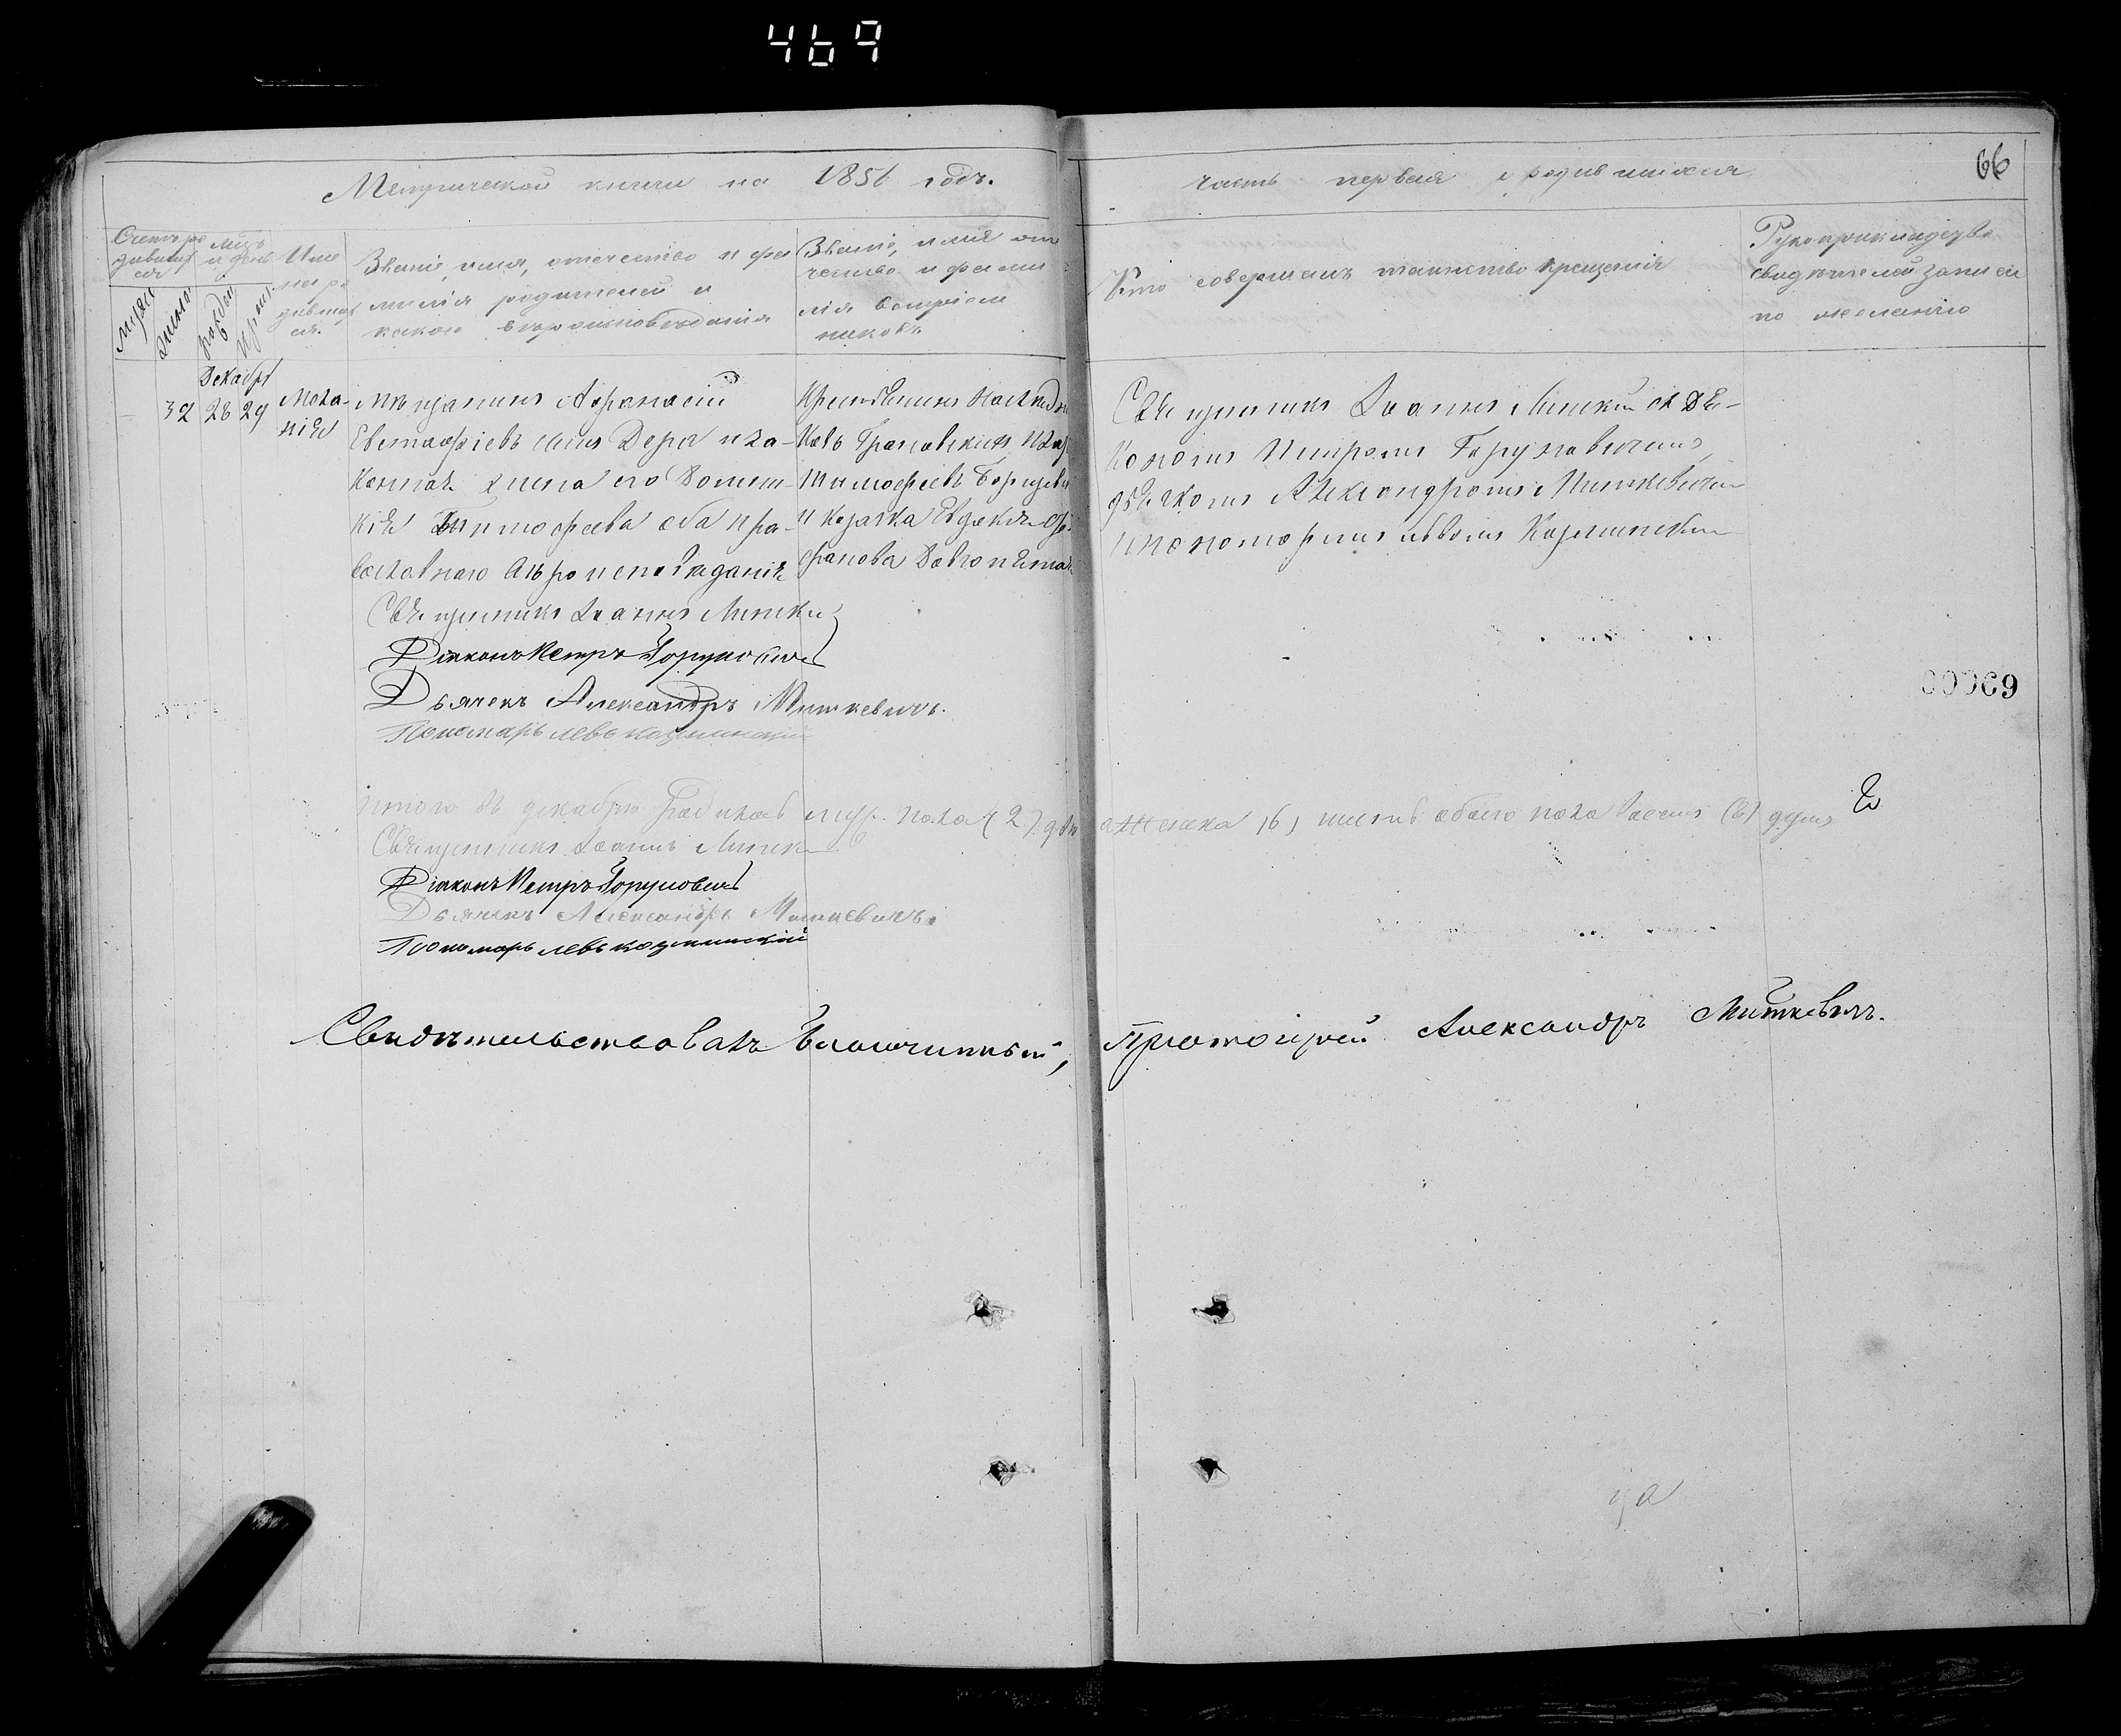 469
Метрической книги на 1851 годъ.
часть первая о родившихся
66
Счетъ ро
дивших
ся
Мцъ
и день
Име
на ро
дивших
ся.
Званіе, имя, отечество и фа
милія родителей и
какого вероисповеданія
Званіе, имя оте
чество и фами
лія воспріем
никовъ
Кто совершалъ таинство крещенія
Рукоприкладство
свидетелей записи
по желанію
Декабрь
32 28 29
Мела-
нія
Мещанинъ Афанасій
Евстафіевъ сынъ Дера и за-
конная жена его
Тимофеева оба пра-
вославного вероисповеданія
Тимофеевъ
и казачка Евдокія
Священникъ Іоаннъ Липскій съ Діа-
кономъ Петромъ Горуновичемъ,
дьячкомъ Александромъ Миткевичемъ
и пономоремъ Львомъ Козминскимъ
Священникъ Іоаннъ Липскій
Діяконъ Петръ Горуновичъ
Дьячекъ Александръ Миткевичъ.
Пономарь Левъ Козминскій
00069
итого въ декабрѣ родилось муж. пола (2) два
а женска (6) шесть обоего пола восемь (8) душъ
Священникъ Іоаннъ Липскій
Діяконъ Петръ Горуновичъ
Дьячекъ Александръ Миткевичъ.
Пономарь Левъ Козминскій
Свидѣтельствовалъ Благочинный, Протоіерей Александръ Миткевичъ.